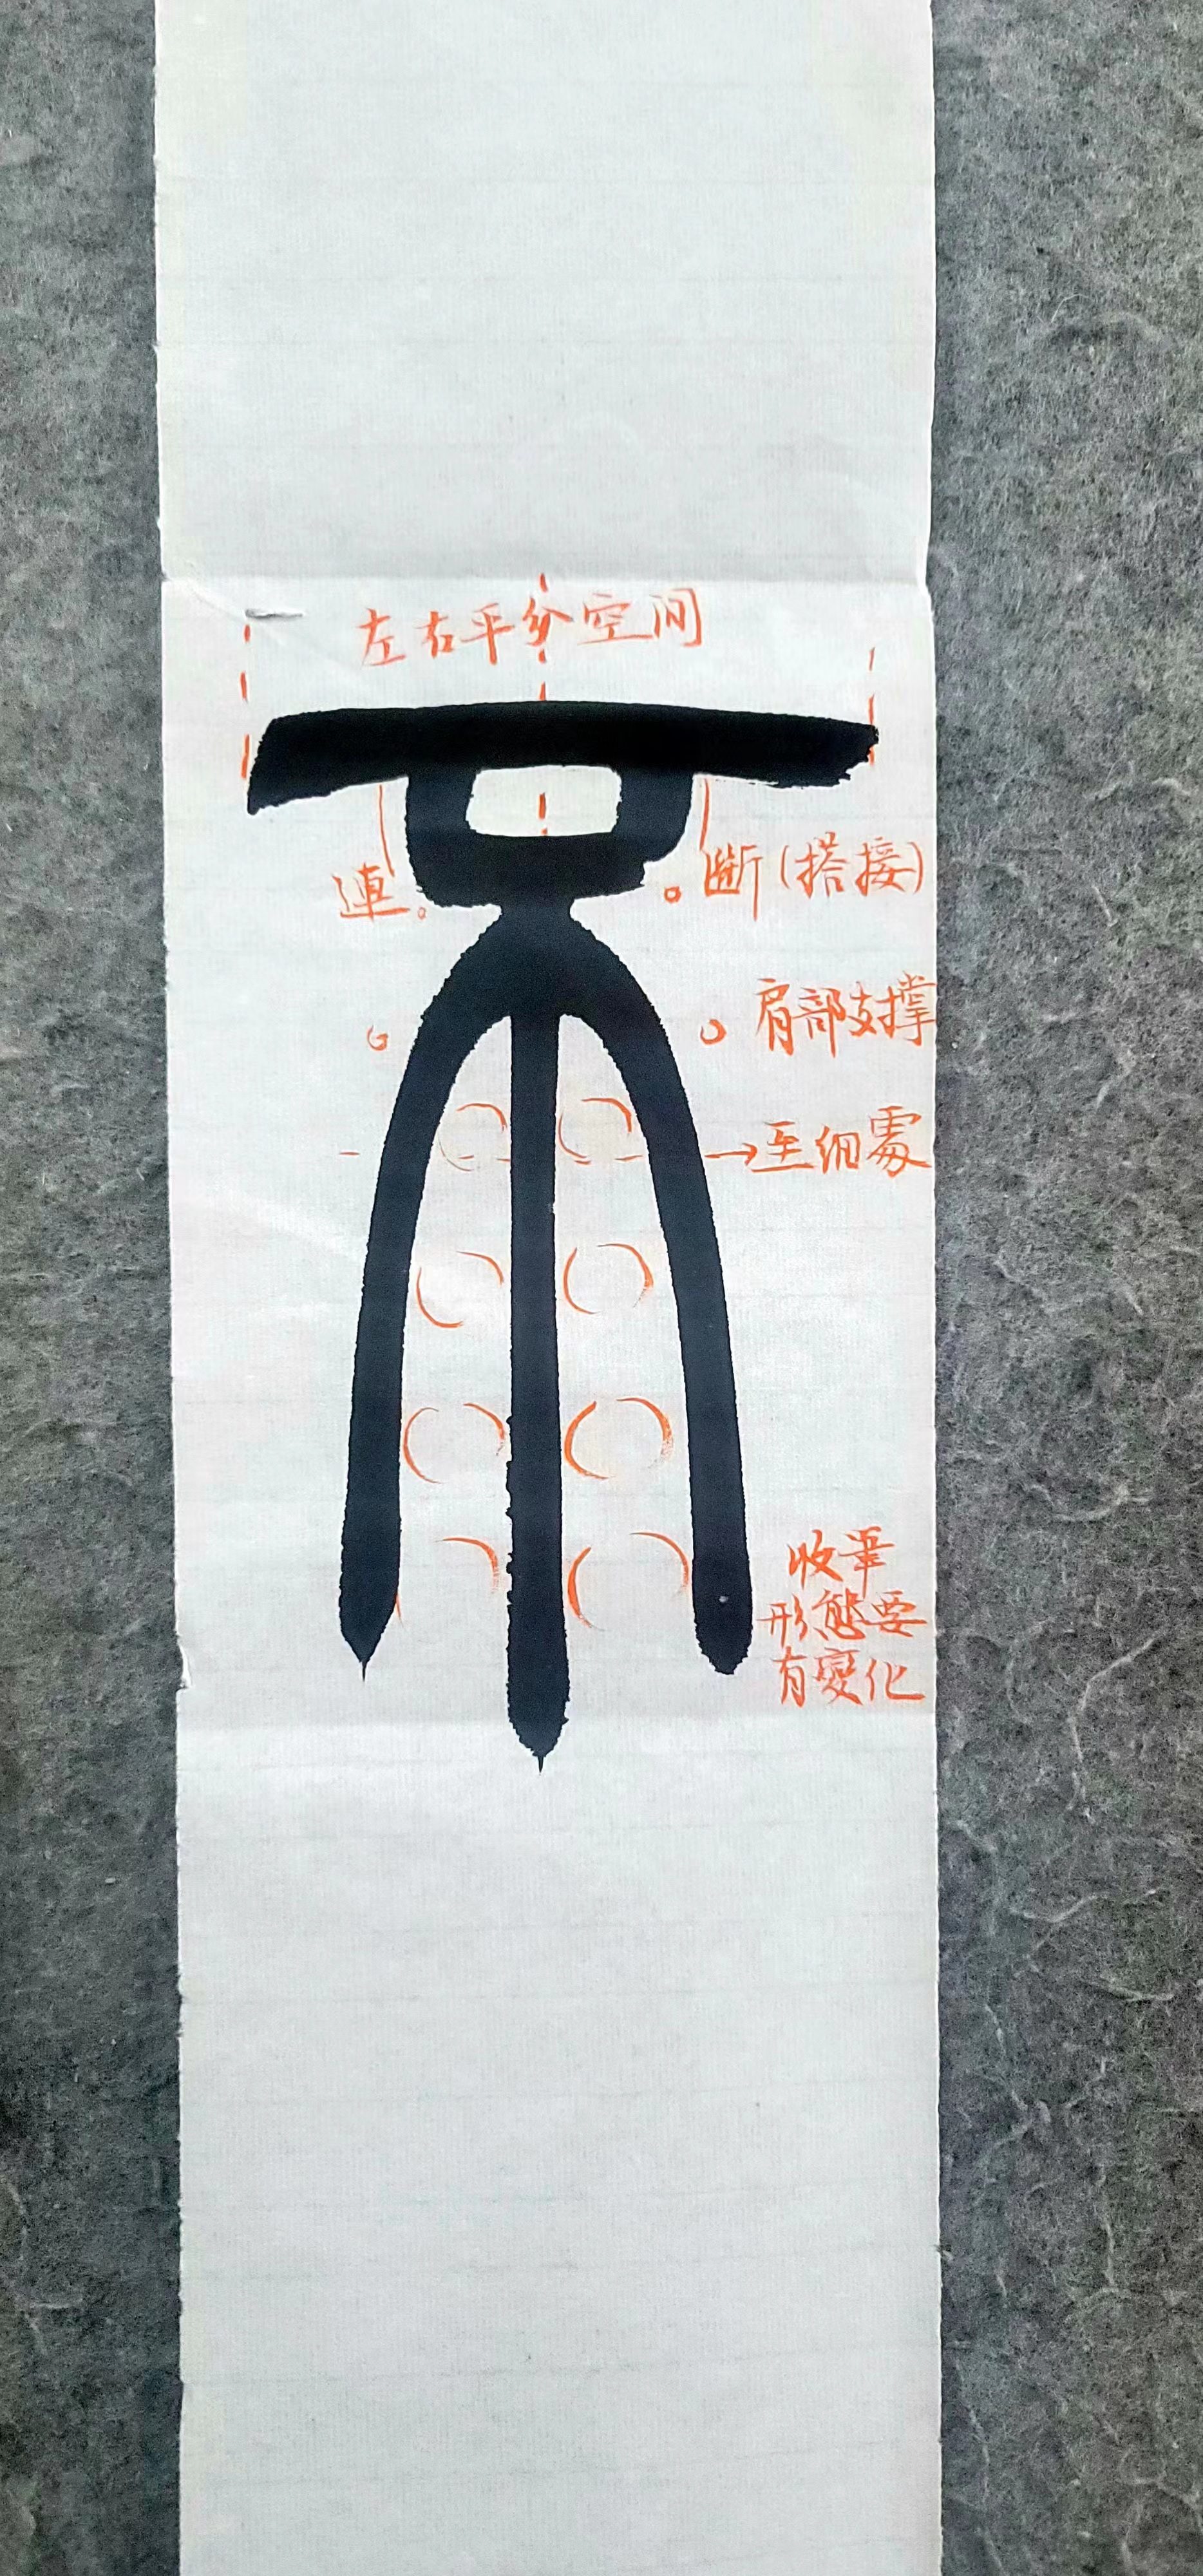 左右平分空间
不
連
断(搭接)
肩部支撑
至细處
收筆
形態要
有變化